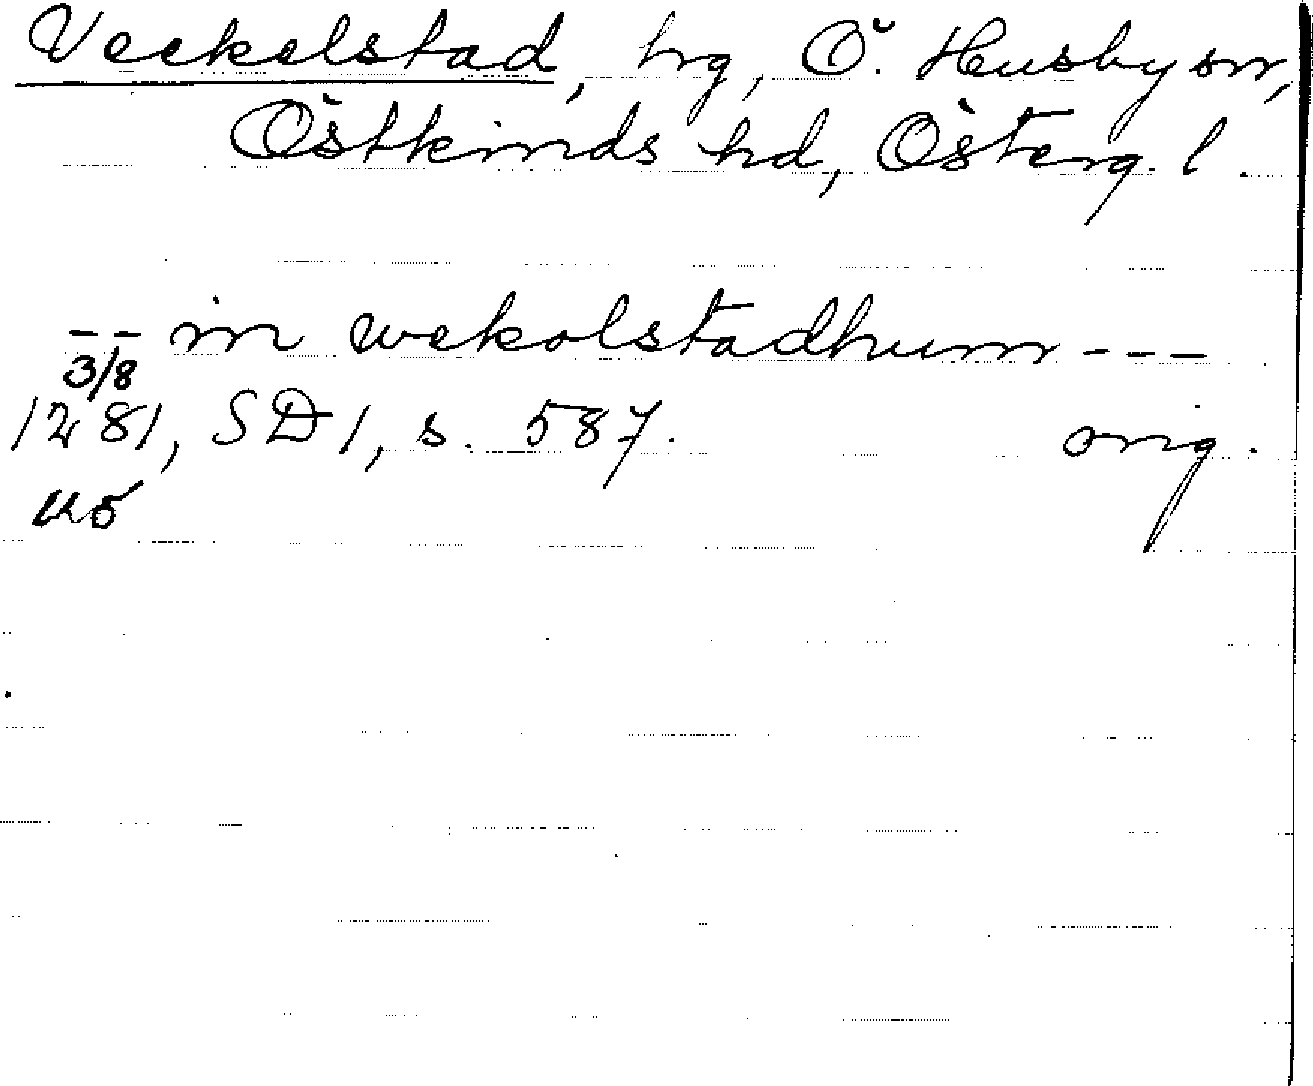 Veckelstad, hg, Ö. Husby sn,
Östkinds hd, Österg. l.
-- in wekolstadhum ---
3/8
1281, SD 1, s. 587. orig.